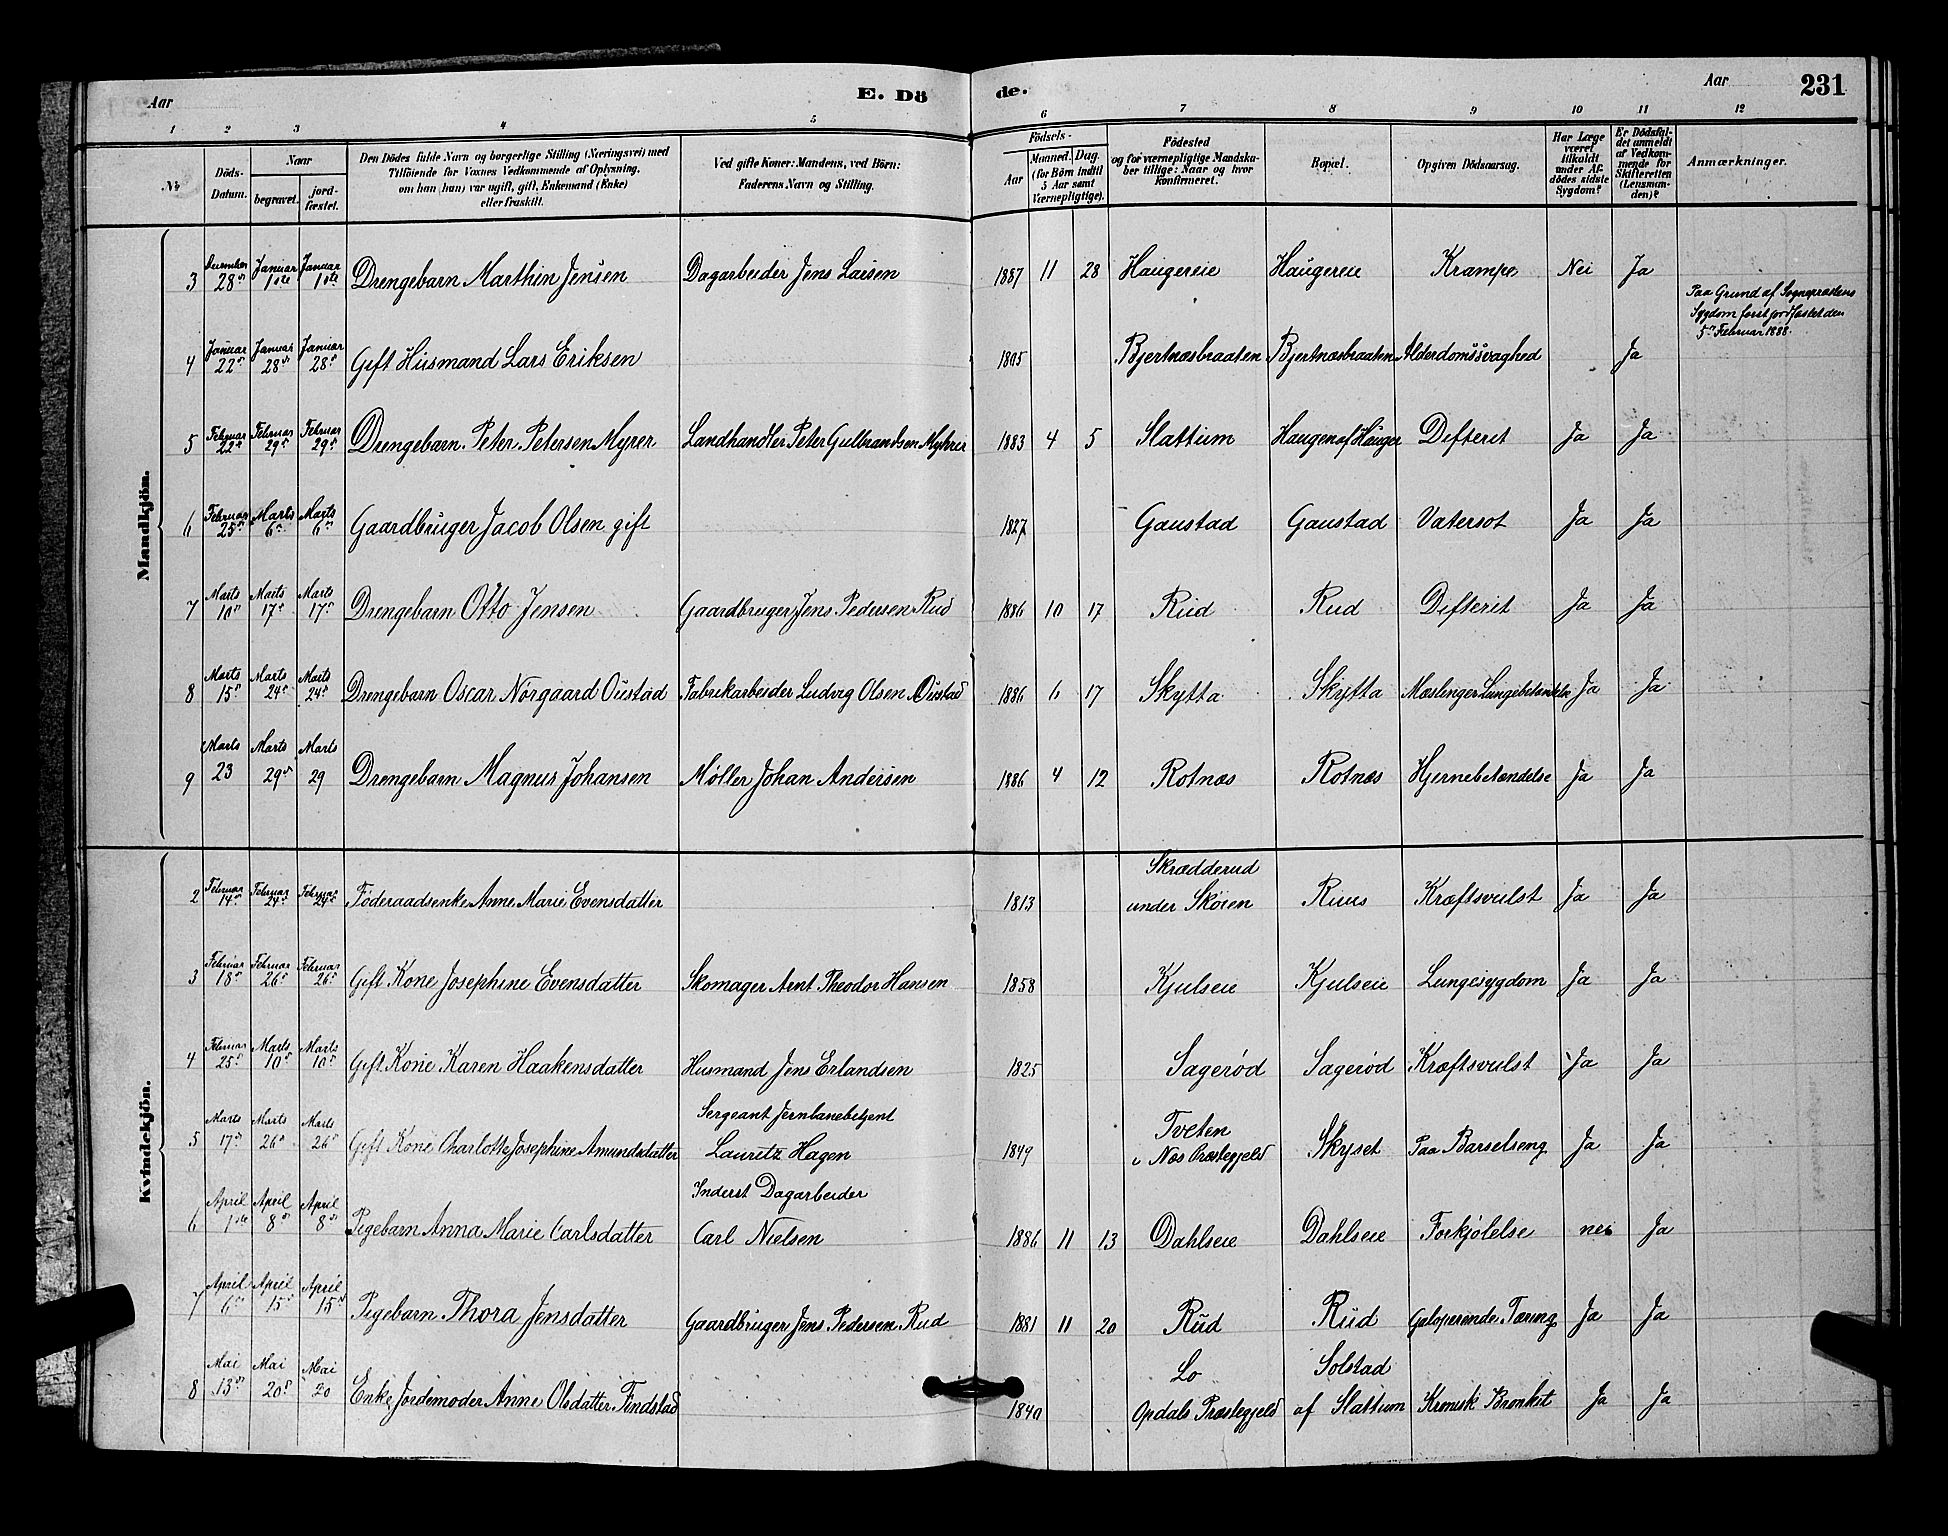 Aar E. Dö de. Aar 231
1 2 3 4 5 6 7 8 9 10 11 12
№
Döds-
Datum.
Naar
begravet.
jord-
fæstet.
Den Dödes fulde Navn og borgerlige Stilling (Næringsvei) med
Tilföiende for Voxnes Vedkommende af Oplysning,
om han (hun) var ugift, gift, Enkemand (Enke)
eller fraskilt.
Ved gifte Koner: Mandens, ved Börn:
Faderens Navn og Stilling.
Födsels-
Aar
Maaned. Dag.
(for Börn indtil
5 Aar samt
Værnepligtige).
Födested
og for værnepligtige Mandska-
ber tillige: Naar og hvor
konfirmeret.
Bopæl.
Opgiven Dödsaarsag.
Har Læge
været
tilkaldt
under Af-
dödes sidste
Sygdom?
Er Dödsfal-
det anmeldt
af Vedkom-
mende for
Skifteretten
(Lensman-
den)?
Anmærkninger.
Mandkjön.
December Januar Januar
3 28de 1ste 1ste Drengebarn Marthin Jensen Dagarbeider Jens Larsen 1887 11 28 Haugereie Haugereie Krampe Nei Ja
Paa Grund af Sogneprestens
Sygdom først jordfæstet den
5te Februar 1888.
Januar Januar Januar
4 22de 28de 28de Gift Husmand Lars Eriksen 1805 Bjertnæsbraaten Bjertnæsbraaten Alderdomssvaghed Ja
Februar Februar Februar
5 22de 29de 29de Drengebarn Peter Petersen Myrer Landhandler Peter Gulbrandsen Myhrer 1883 4 5 Slattum Haugen af Hauger Defterit Ja Ja
Februar Marts Marts
6 25de 6te 6te Gaardbruger Jacob Olsen gift 1827 Gaustad Gaustad Vatersot Ja Ja
Marts Marts Marts
7 10de 17de 17de Drengebarn Otto Jensen Gaardbruger Jens Pedersen Rud 1886 10 17 Rud Rud Defterit Ja Ja
Marts Marts Marts
8 15de 24de 24de Drengebarn Oscar Nørgaard Oustad Fabrikarbeider Ludvig Olsen Oustad 1886 6 17 Skytta Skytta Mæslinger Lungebetændelse Ja Ja
Marts Marts Marts
9 23 29de 29 Drengebarn Magnus Johansen Møller Johan Andersen 1886 4 12 Rotnæs Rotnæs Hjernebetændelse Ja Ja
Kvindekjön.
Februar Februar Februar Skrædderud
2 14de 24de 24de Føderaadsenke Anne Marie Evensdatter 1813 under Skøien Ruus Kræftsvulst Ja Ja
Februar Februar Februar
3 18de 26de 26de Gift Kone Josephine Evensdatter Skomager Arnt Theodor Hansen 1858 Kjulseie Kjulseie Lungesygdom Ja Ja
Februar Marts Marts
4 25de 10de 10de Gift Kone Karen Haakensdatter Husmand Jens Erlandsen 1825 Sagerød Sagerød Kræftsvulst Ja Ja
Marts Marts Marts Sergeant Jernbanebetjent Tveten
5 17de 26de 26de Gift Kone Charlotte Josephine Amundsdatter Lauritz Hagen 1849 i Næs Præstegjeld Skyset Paa Barselseng Ja Ja
April April April Inderst Dagarbeider
6 1ste 8de 8de Pigebarn Anna Marie Carlsdatter Carl Nielsen 1886 11 13 Dahlseie Dahlseie Forkjølelse nei Ja
April April April
7 6te 15de 15de Pigebarn Thora Jensdatter Gaardbruger Jens Pedersen Rud 1881 11 20 Rud Rud Galoperende Tæring Ja Ja
Mai Mai Mai Lo Solstad
8 13de 20de 20 Enke Jordemoder Anne Olsdatter Findstad 1840 Opdals Præstegjeld af Slattum Kronisk Bronkit Ja Ja